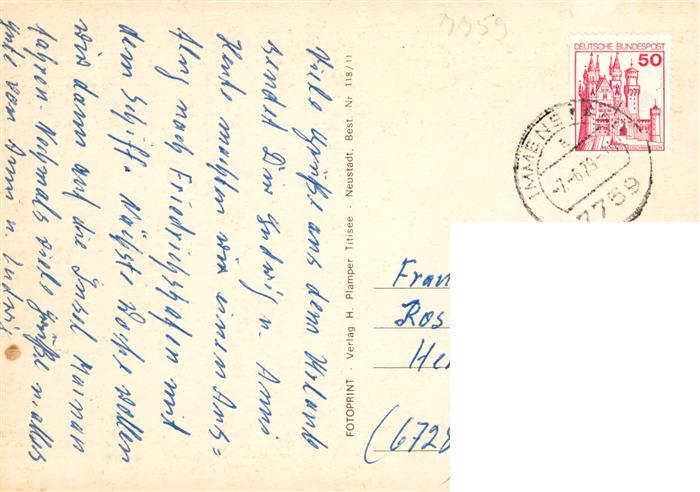 Viele Grüße aus dem Urlaub
sendet Dir Ludwig u. Anni
Heute machten wir einen Aus=
flug nach Friedrichshafen mit
dem Schiff. Nächste Woche wollen
wir dann auf die Insel Mainau
fahren. Nochmals viele Grüße u. alles
Gute von Anni u. Ludwig
FOTOPRINT - Verlag H. Plamper Titisee - Neustadt. Best. Nr 118/11
7759
DEUTSCHE BUNDESPOST
50
IMMENST
-7.-6.79-
7759
Fran
Ros
He
(6728